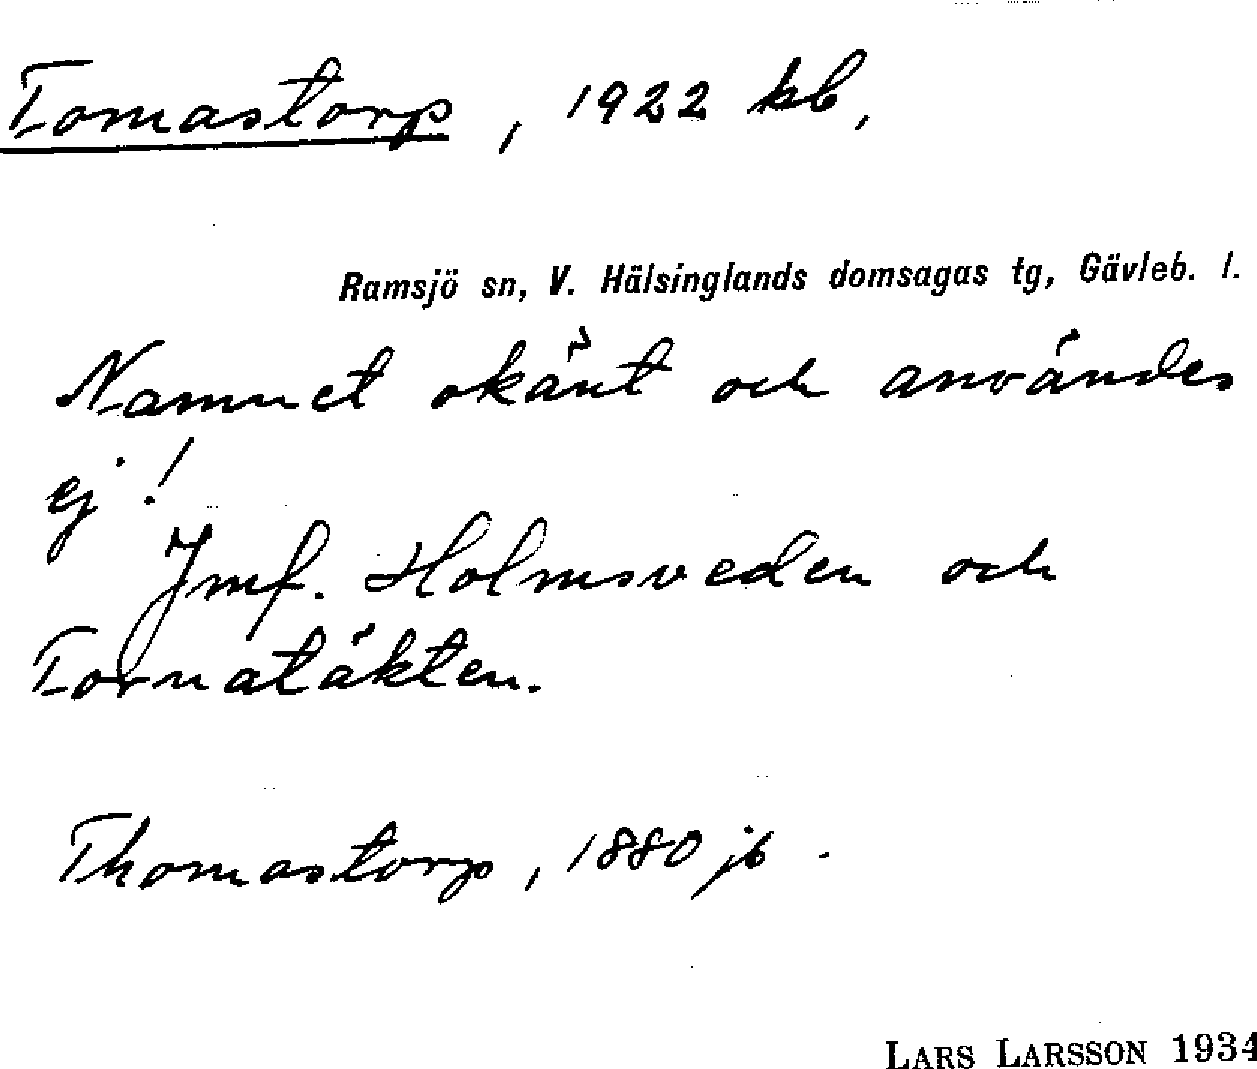 Tomastorp, 1922 kb,
Ramsjö sn, V. Hälsinglands domsagas tg, Gävleb. l.
Namnet okänt och användes
ej!
Jmf. Holmsveden och
Tornatäkten.
Thomastorp, 1880 jb.
LARS LARSSON 1934